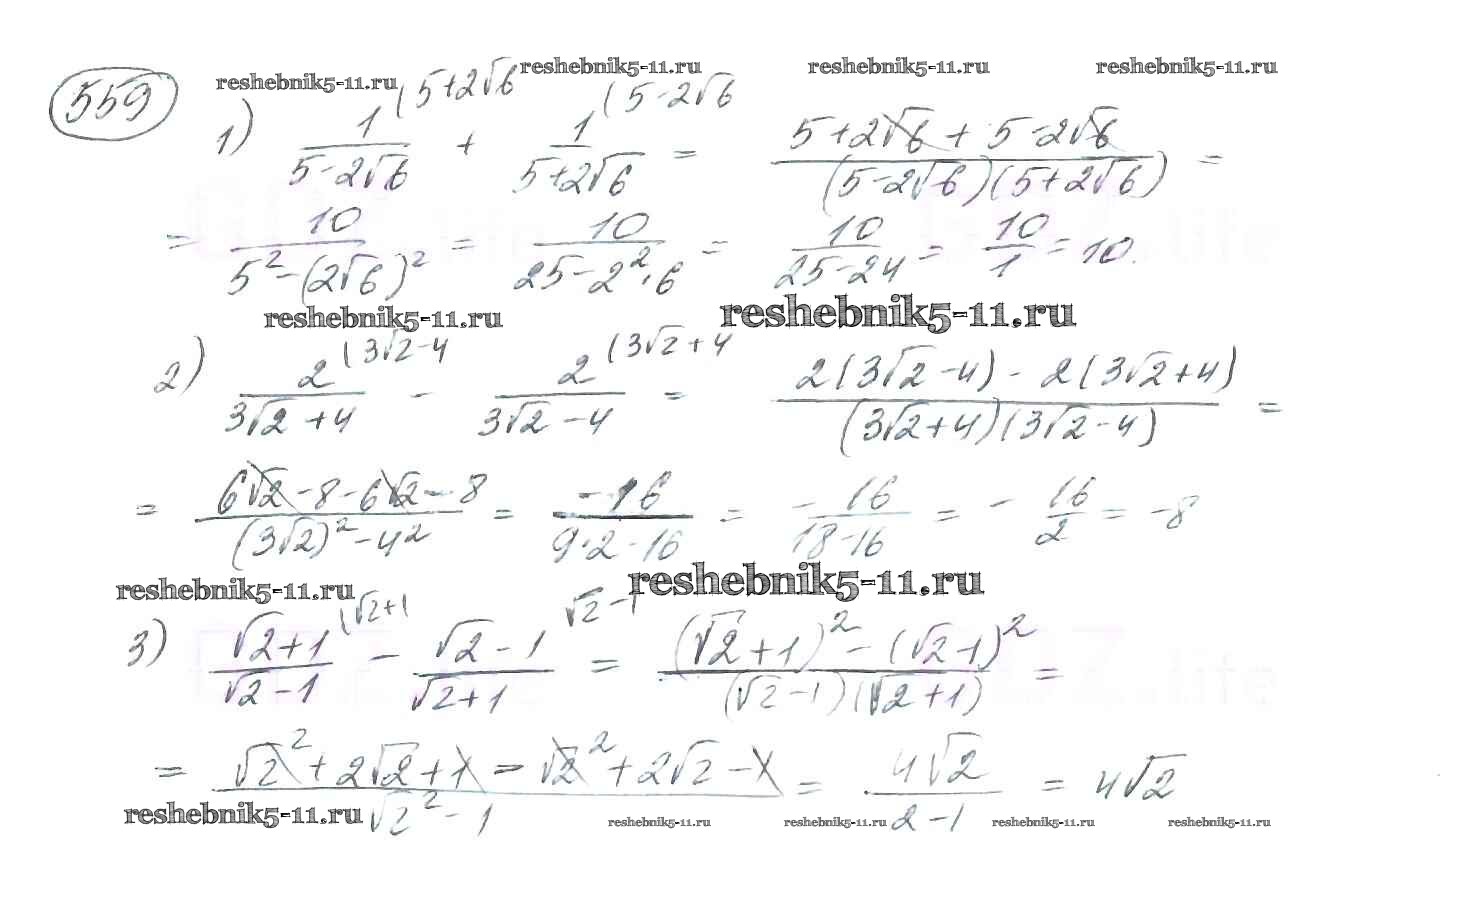 559
reshebnik5-11.ru reshebnik5-11.ru reshebnik5-11.ru reshebnik5-11.ru
(5+2√6 (5-2√6
1) 1/(5-2√6) + 1/(5+2√6) = (5+2√6 + 5-2√6)/((5-2√6)(5+2√6)) =
= 10/(5²-(2√6)²) = 10/(25-2²·6) = 10/(25-24) = 10/1 = 10.
reshebnik5-11.ru reshebnik5-11.ru
(3√2-4 (3√2+4
2) 2/(3√2+4) - 2/(3√2-4) = (2(3√2-4) - 2(3√2+4))/((3√2+4)(3√2-4)) =
= (6√2-8-6√2-8)/((3√2)²-4²) = -16/(9·2-16) = -16/(18-16) = -16/2 = -8
reshebnik5-11.ru reshebnik5-11.ru
(√2+1 √2-1
3) (√2+1)/(√2-1) - (√2-1)/(√2+1) = ((√2+1)² - (√2-1)²)/((√2-1)(√2+1)) =
= (√2²+2√2+1-√2²+2√2-1)/(√2²-1) = 4√2/(2-1) = 4√2
reshebnik5-11.ru reshebnik5-11.ru reshebnik5-11.ru reshebnik5-11.ru reshebnik5-11.ru